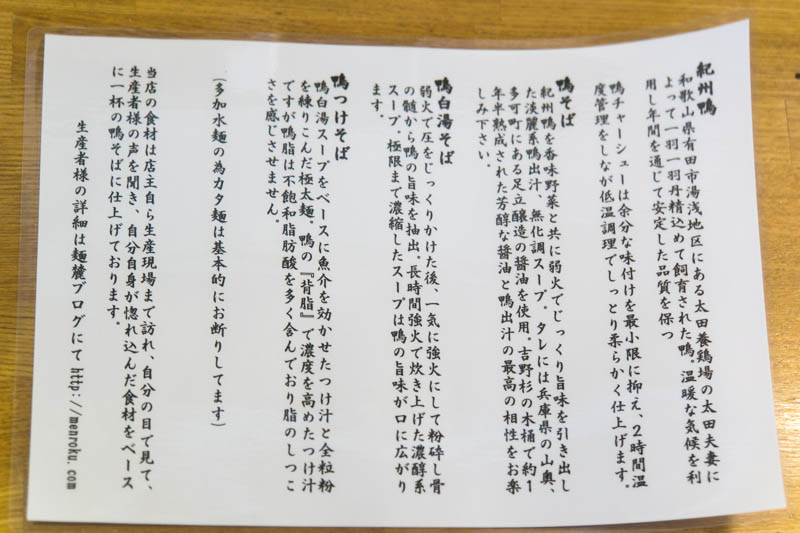 紀州鴨
和歌山県有田市湯浅地区にある太田養鶏場の太田夫妻に
よって一羽一羽丹精込めて飼育された鴨。温暖な気候を利
用し年間を通じて安定した品質を保つ
鴨チャーシューは余分な味付けを最小限に抑え、2時間温
度管理をしなが低温調理でしっとり柔らかく仕上げます。
鴨そば
紀州鴨を香味野菜と共に弱火でじっくり旨味を引き出し
た淡麗系鴨出汁、無化調スープ。タレには兵庫県の山奥、
多可町にある足立醸造の醤油を使用。吉野杉の木桶で約1
年半熟成された芳醇な醤油と鴨出汁の最高の相性をお楽
しみ下さい。
鴨白湯そば
弱火で圧をじっくりかけた後、一気に強火にして粉砕し骨
の髄から鴨の旨味を抽出。長時間強火で炊き上げた濃醇系
スープ。極限まで濃縮したスープは鴨の旨味が口に広がり
ます。
鴨つけそば
鴨白湯スープをベースに魚介を効かせたつけ汁と全粒粉
を練りこんだ極太麺。鴨の『背脂』で濃度を高めたつけ汁
ですが鴨脂は不飽和脂肪酸を多く含んでおり脂のしつこ
さを感じさせません。
(多加水麺の為カタ麺は基本的にお断りしてます)
当店の食材は店主自ら生産現場まで訪れ、自分の目で見て、
生産者様の声を聞き、自分自身が惚れ込んだ食材をベース
に一杯の鴨そばに仕上げております。
生産者様の詳細は麺麓ブログにて http://menroku.com